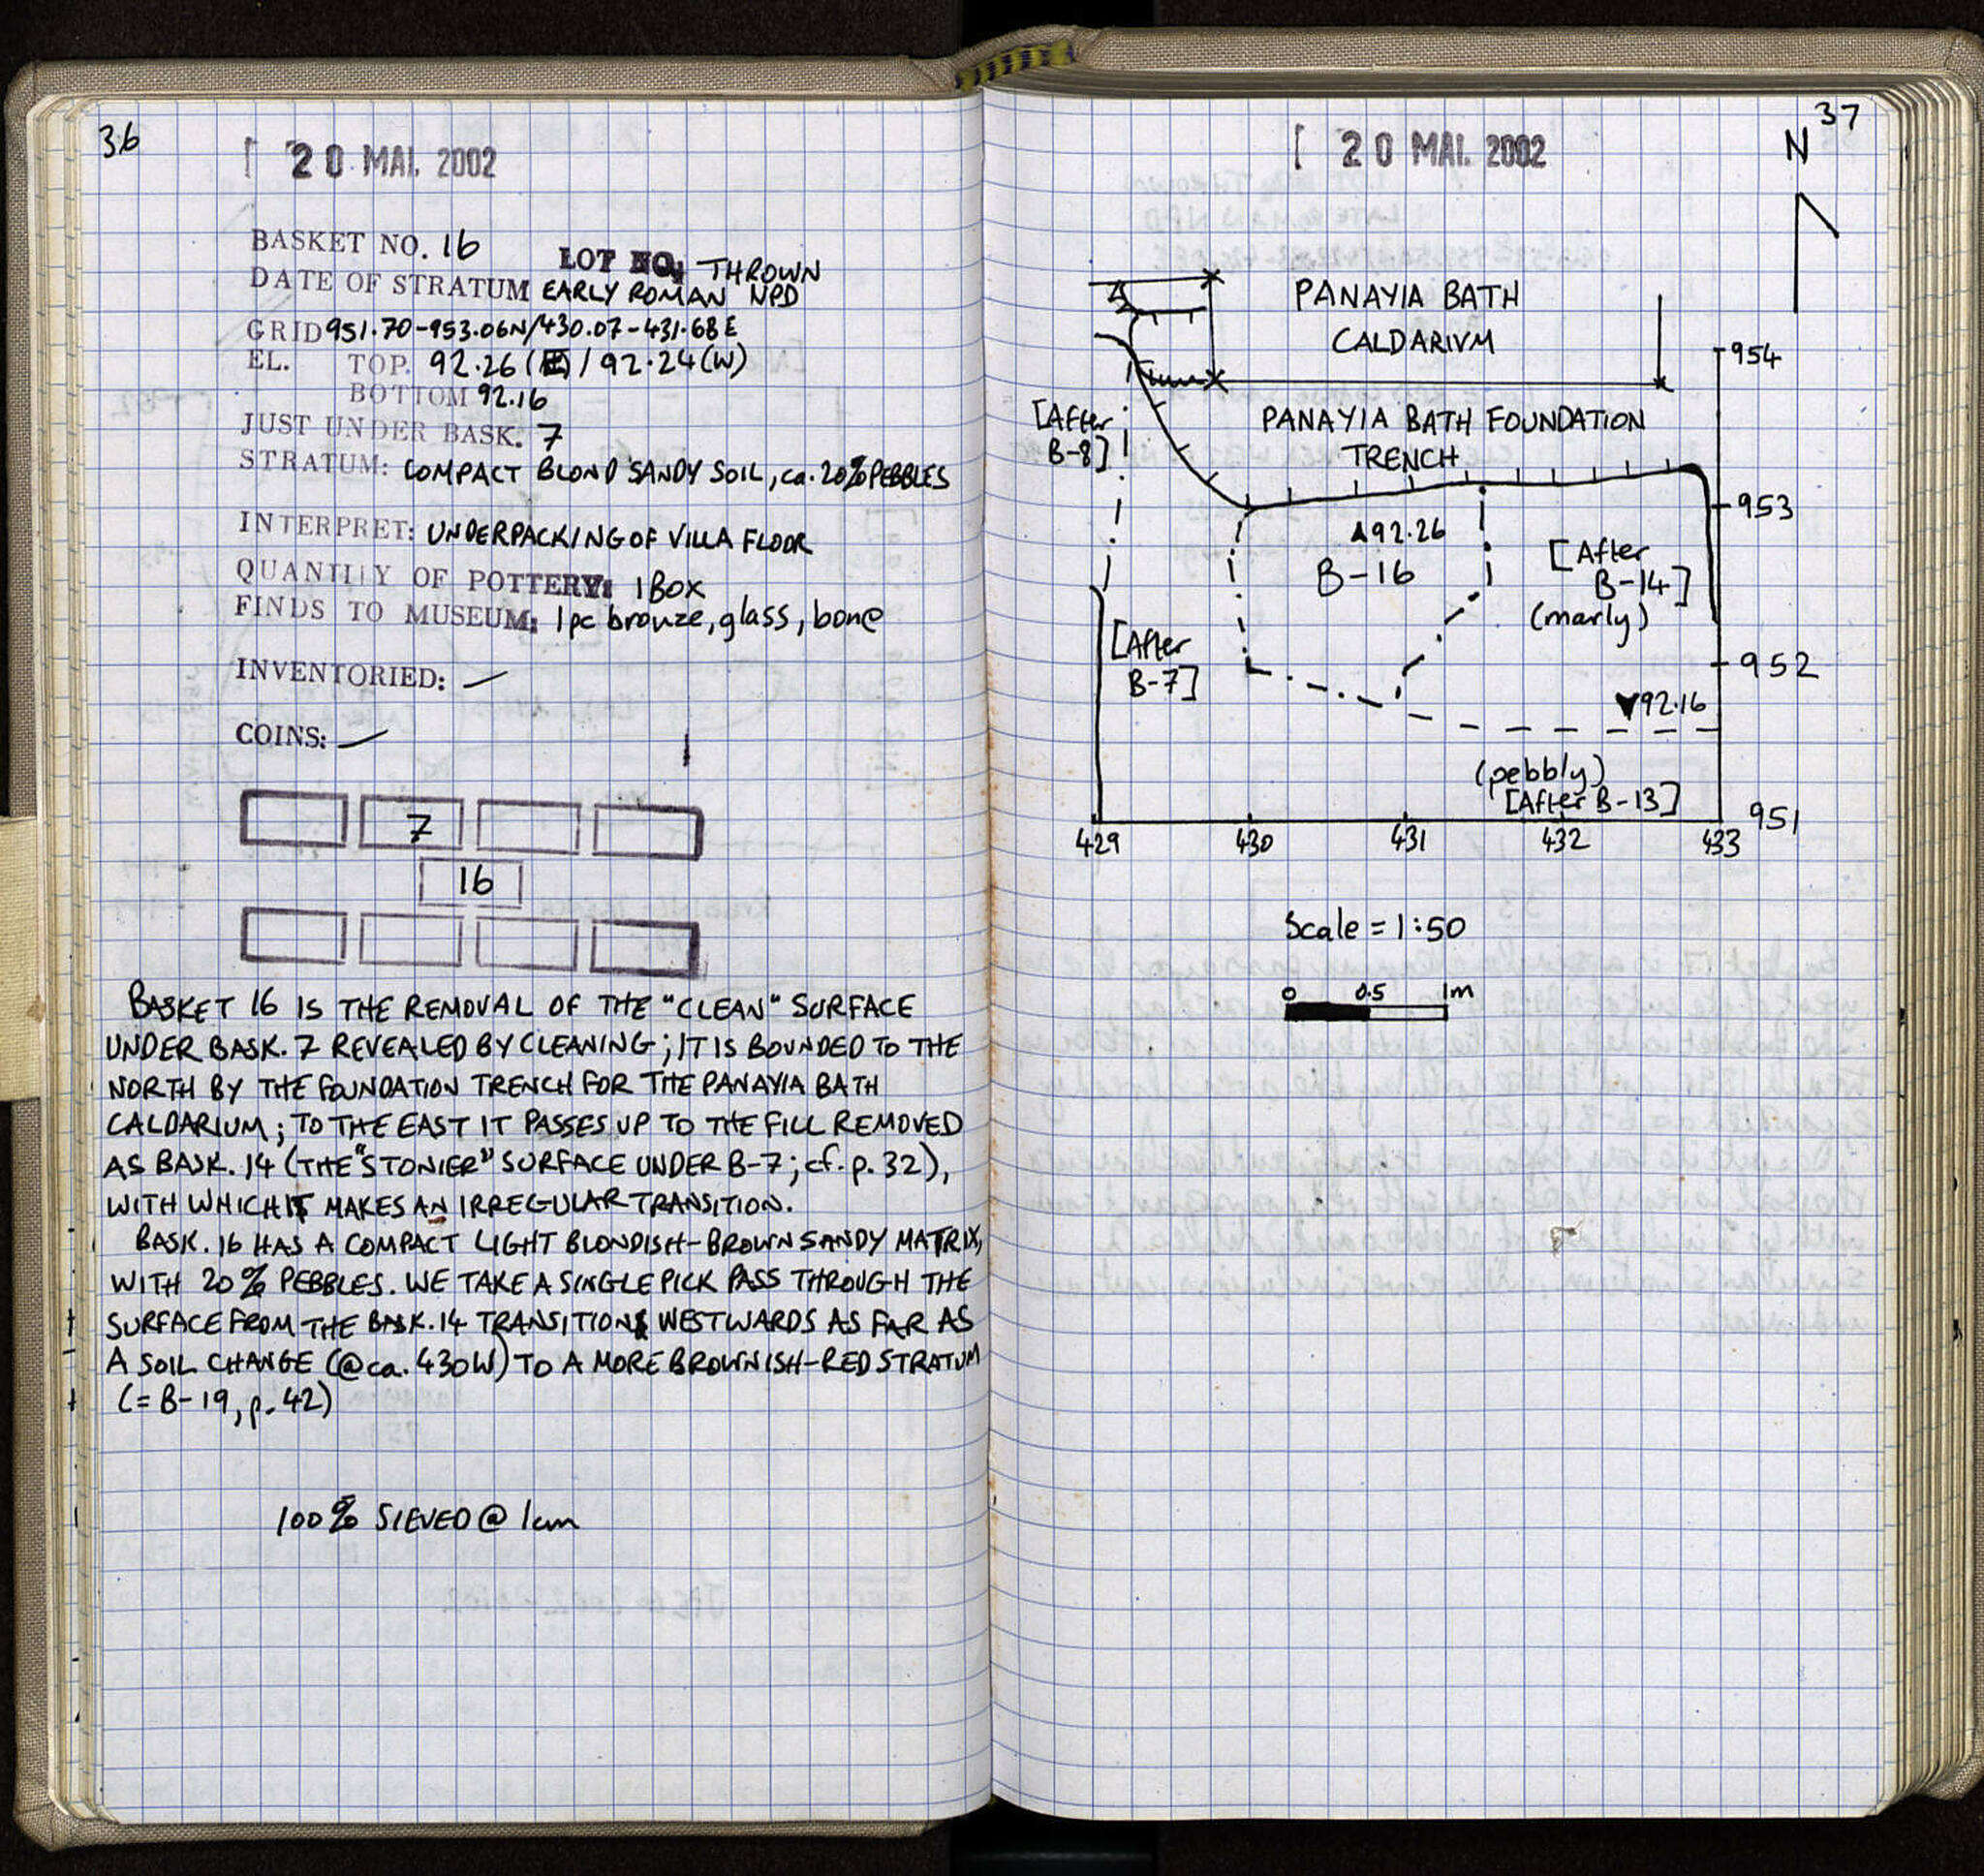 36
20 MAI. 2002
BASKET NO. 16
LOT NO: THROWN
DATE OF STRATUM EARLY ROMAN NPD
GRID 951.70-953.06N/430.07-431.68E
EL. TOP. 92.26 (E) / 92.24 (W)
BOTTOM 92.16
JUST UNDER BASK. 7
STRATUM: COMPACT BLOND SANDY SOIL, ca. 20% PEBBLES
INTERPRET: UNDERPACKING OF VILLA FLOOR
QUANTITY OF POTTERY: 1 BOX
FINDS TO MUSEUM: 1 pc bronze, glass, bone
INVENTORIED: —
COINS: —
7
16
BASKET 16 IS THE REMOVAL OF THE "CLEAN" SURFACE
UNDER BASK. 7 REVEALED BY CLEANING; IT IS BOUNDED TO THE
NORTH BY THE FOUNDATION TRENCH FOR THE PANAYIA BATH
CALDARIUM; TO THE EAST IT PASSES UP TO THE FILL REMOVED
AS BASK. 14 (THE "STONIER" SURFACE UNDER B-7; cf. p. 32),
WITH WHICH IT MAKES AN IRREGULAR TRANSITION.
BASK. 16 HAS A COMPACT LIGHT BLONDISH-BROWN SANDY MATRIX,
WITH 20% PEBBLES. WE TAKE A SINGLE PICK PASS THROUGH THE
SURFACE FROM THE BASK. 14 TRANSITION WESTWARDS AS FAR AS
A SOIL CHANGE (@ ca. 430W) TO A MORE BROWNISH-RED STRATUM
(= B-19, p. 42)
100% SIEVED @ 1cm
37
20 MAI. 2002
N
PANAYIA BATH
CALDARIVM
954
[After
B-8]
PANAYIA BATH FOUNDATION
TRENCH
953
92.26
B-16
[After
B-14]
(marly)
[After
B-7]
952
92.16
(pebbly)
[After B-13]
951
429 430 431 432 433
Scale = 1:50
0 0.5 1m